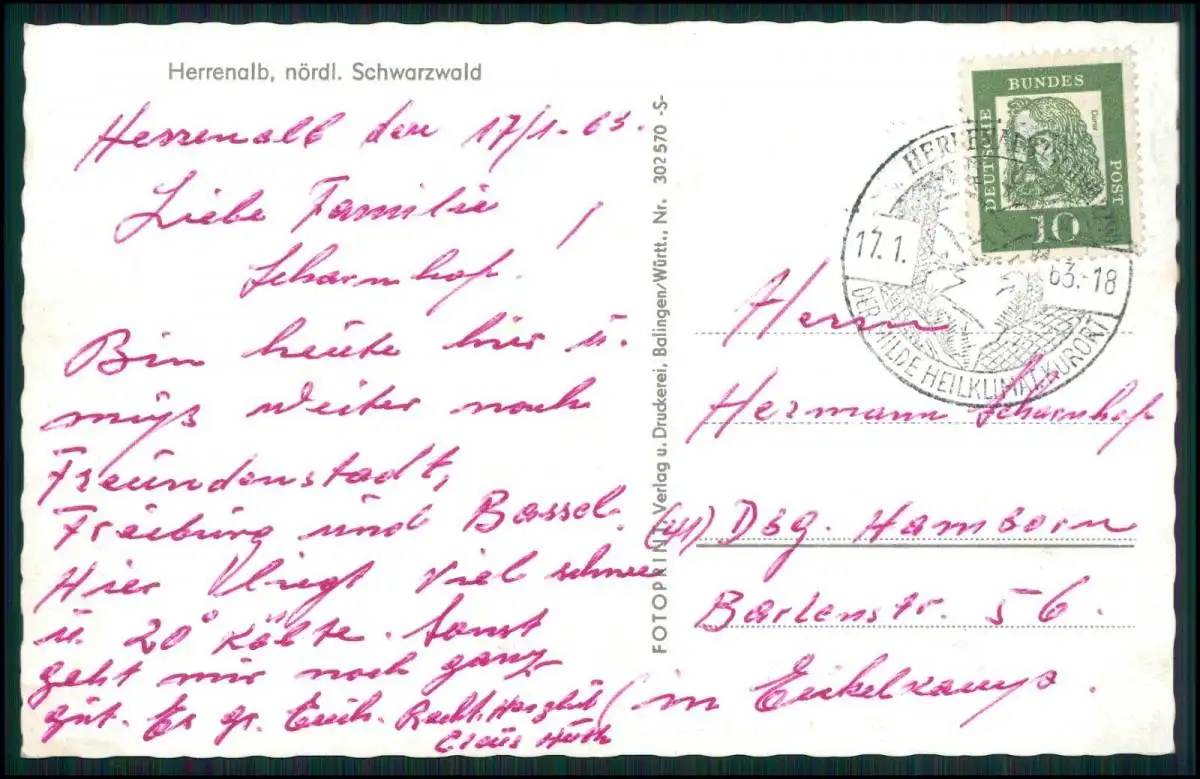 Herrenalb, nördl. Schwarzwald
Herrenalb den 17/1-63.
Liebe Familie
Scharnhof!
Bin heute hier u.
muß weiter nach
Freundenstadt,
Freiburg und Bassel.
Hier liegt viel schnee
u. 20° Kälte. Sonst
geht mir noch ganz
gut. Es gr. Euch. Recht Herzlich
Claus Huth
FOTOPRINT Verlag u. Druckerei, Balingen/Württ., Nr. 302570 -S-
DEUTSCHE BUNDES POST
Dürer
10
17.1. 63.-18
DER MILDE HEILKLIMAT.KURORT
Herrn
Hermann Scharnhof
(41) Dsg. Hamborn
Barlenstr. 56.
(im Eickelkamp.